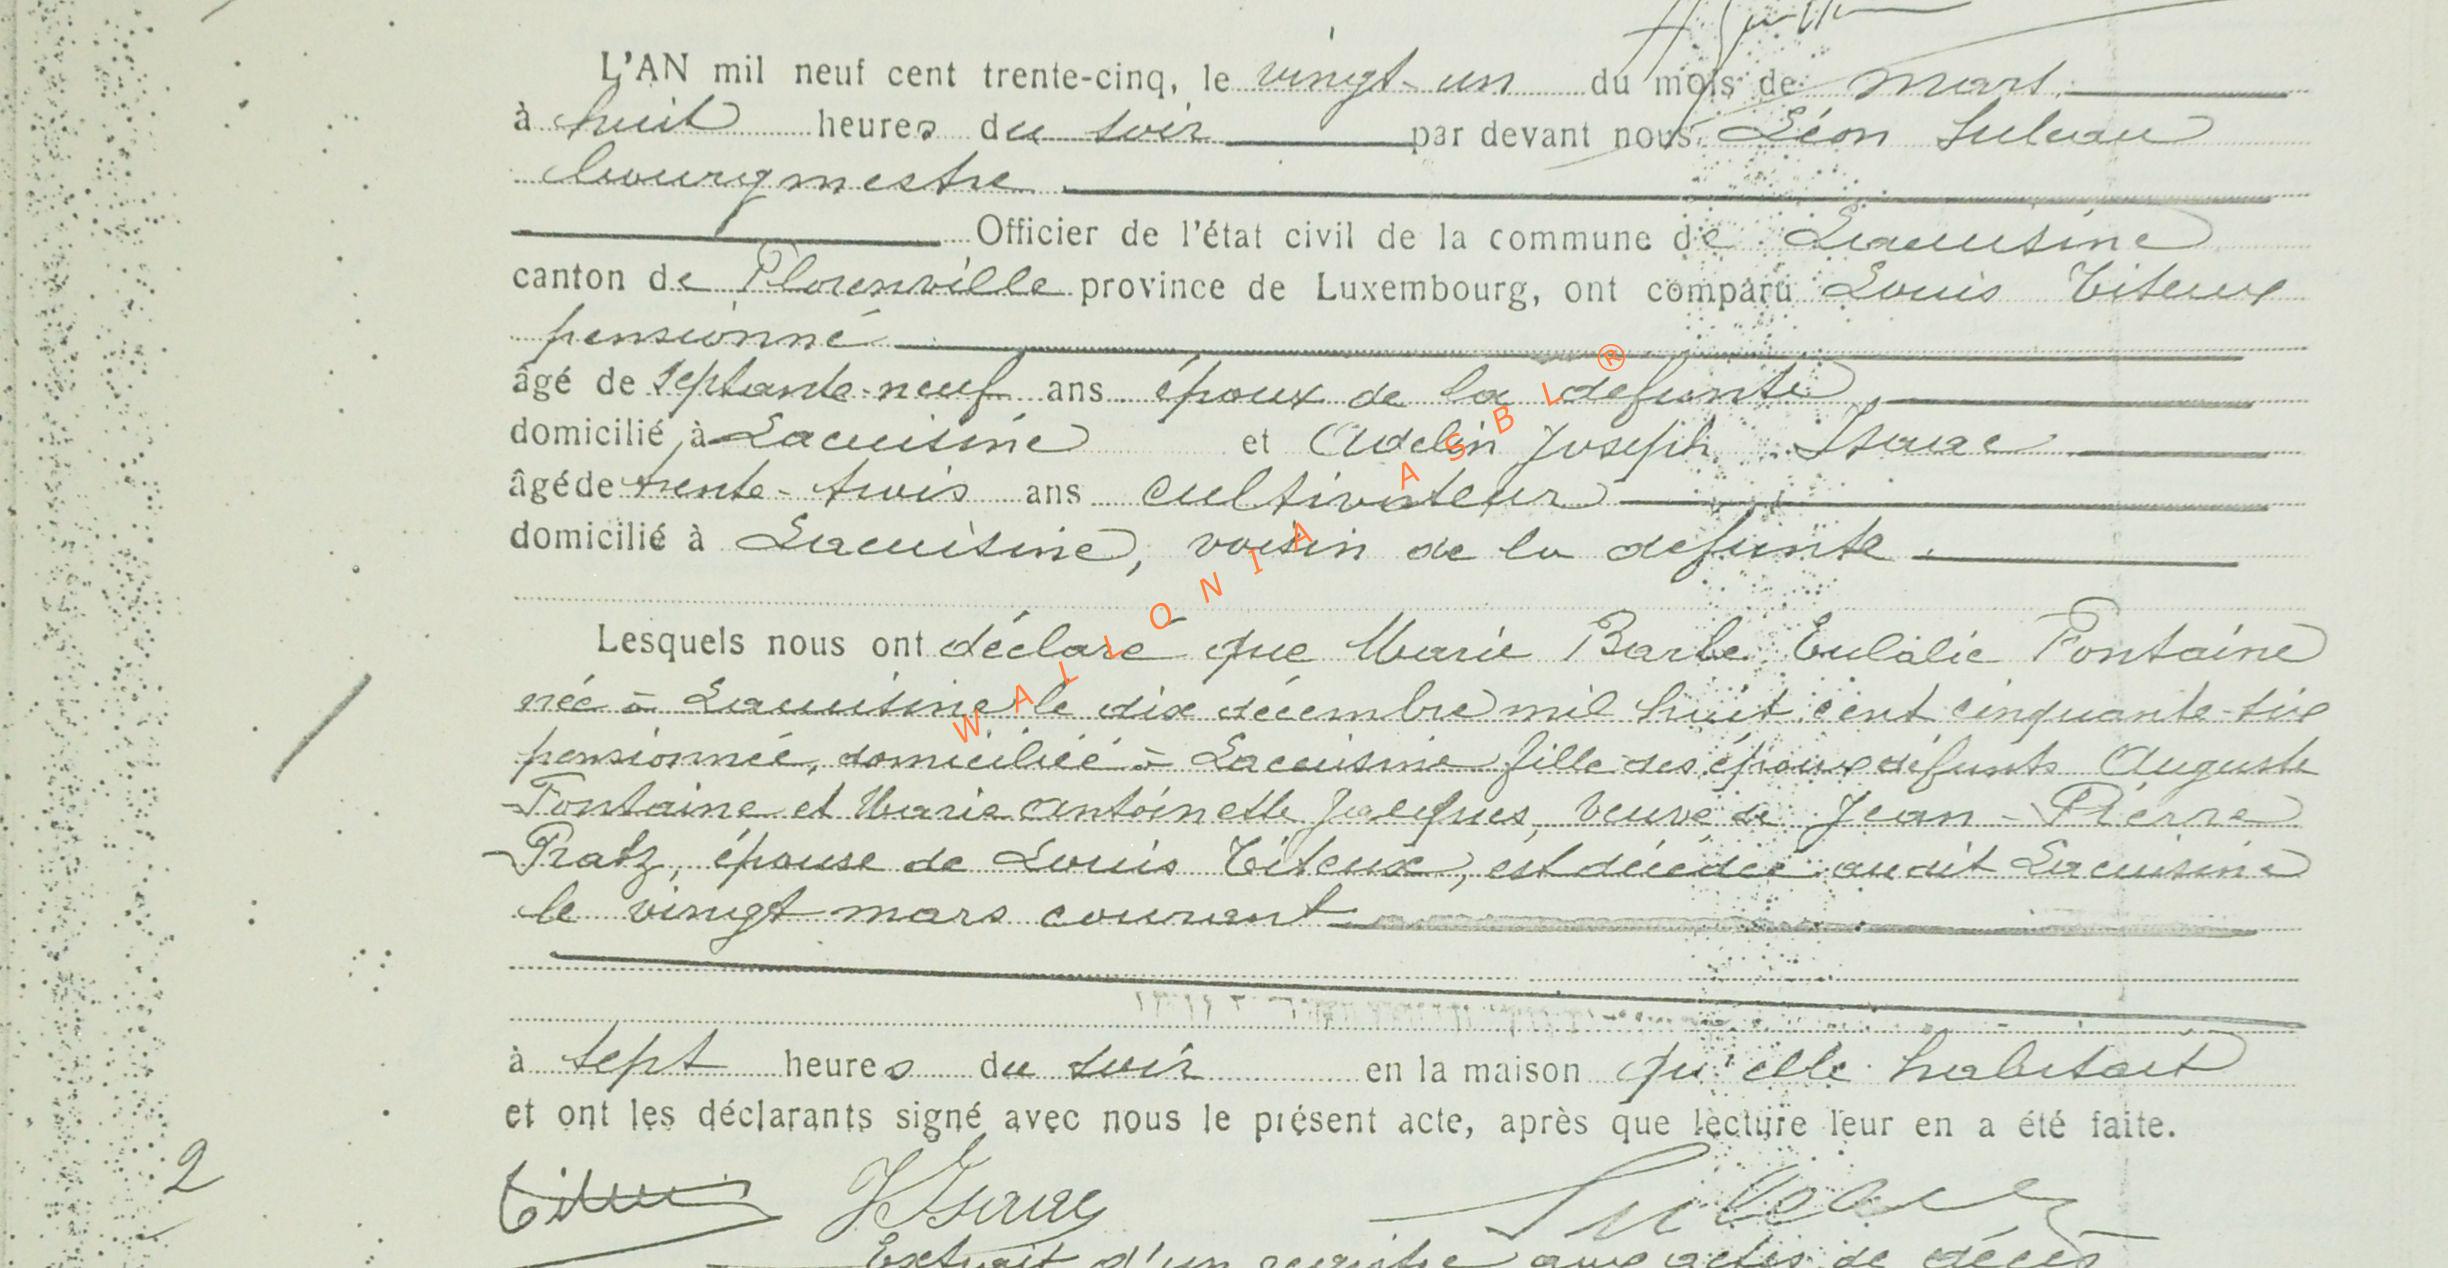 L'AN mil neuf cent trente-cinq, le vingt-un du mois de mars.
à huit heures du soir par devant nous Léon Suleau
bourgmestre
Officier de l'état civil de la commune de Lacuisine
canton de Florenville province de Luxembourg, ont comparu Louis Titeux
pensionné
âgé de septante-neuf ans époux de la defunte,
domicilié à Lacuisine et Adelin Joseph
âgé de trente-trois ans cultivateur
domicilié à Lacuisine, voisin de la defunte.
WALLONIA ASBL®
Lesquels nous ont déclaré que Marie Barbe Eulalie Fontaine
née à Lacuisine le dix décembre mil huit cent cinquante-six
pensionnée, domiciliée à Lacuisine fille des époux défunts Auguste
Fontaine et Marie Antoinette Jacques, veuve de Jean-Pierre
Pratz, épouse de Louis Titeux, est décédée audit Lacuisine
le vingt mars courant
à sept heures du soir en la maison qu'elle habitait
et ont les déclarants signé avec nous le présent acte, après que lecture leur en a été faite.
2
Titeux Suleau
Extrait d'un registre aux actes de décès